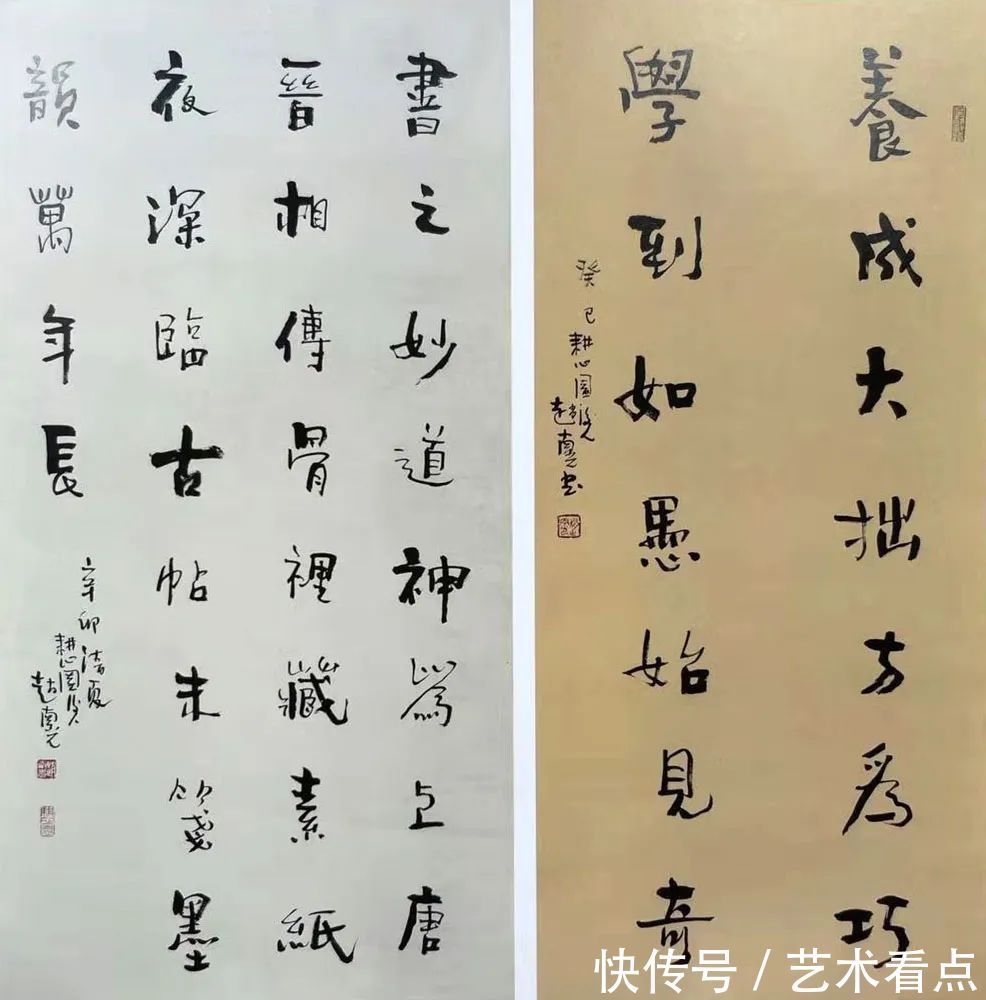 書之妙道神為上唐
晉相傳骨裡藏素紙
夜深臨古帖朱箋墨
韻萬年長
辛卯清夏
耕心園
趙
養成大拙方為巧
學到如愚始見奇
癸巳耕心園
趙
快传号 / 艺术看点